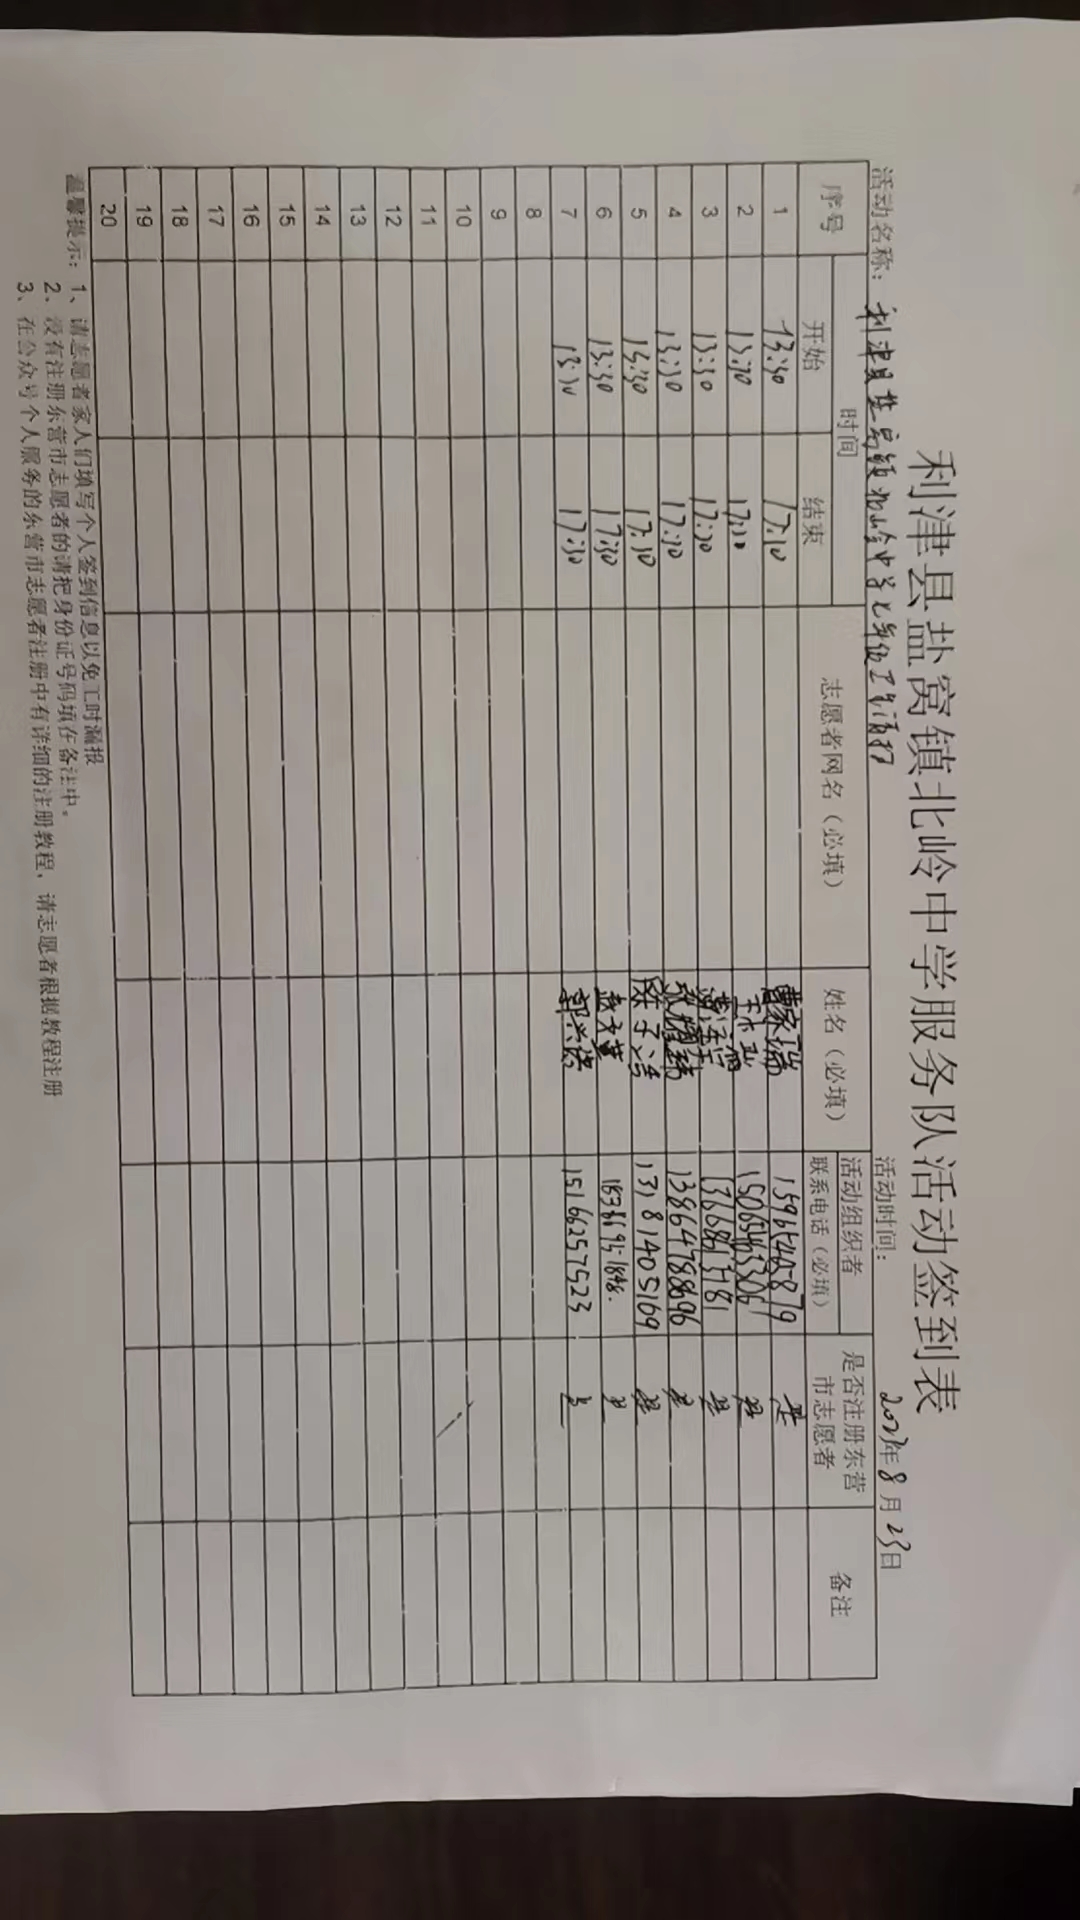 利津县盐窝镇北岭中学服务队活动签到表
活动名称：利津县盐窝镇北岭中学七年级卫生清扫 活动时间：2023年8月23日
序号 时间 志愿者网名（必填） 姓名（必填） 活动组织者联系电话（必填） 是否注册东营市志愿者 备注
开始 结束
1 13:30 17:30 瑞 是
2 13:30 17:30 15065463306 是
3 13:30 17:30 是
4 13:30 17:30 张 13864788696 是
5 13:30 17:30 陈子浩 13181405169 是
6 13:30 17:30 赵文萱 是
7 13:30 17:30 郭兴洛 15166257523 是
8
9
10
11
12
13
14
15
16
17
18
19
20
温馨提示：1、请志愿者家人们填写个人签到信息以免工时漏报
2、没有注册东营市志愿者的请把身份证号码填在备注中。
3、在公众号个人服务的东营市志愿者注册中有详细的注册教程，请志愿者根据教程注册